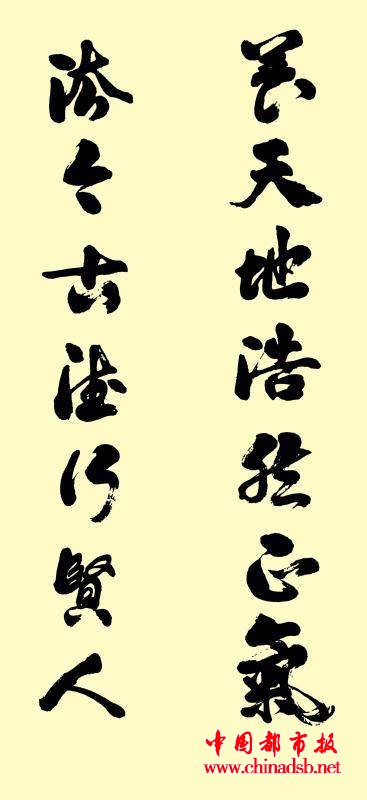 养天地浩然正氣
法今古德行賢人
中国都市报
www.chinadsb.net